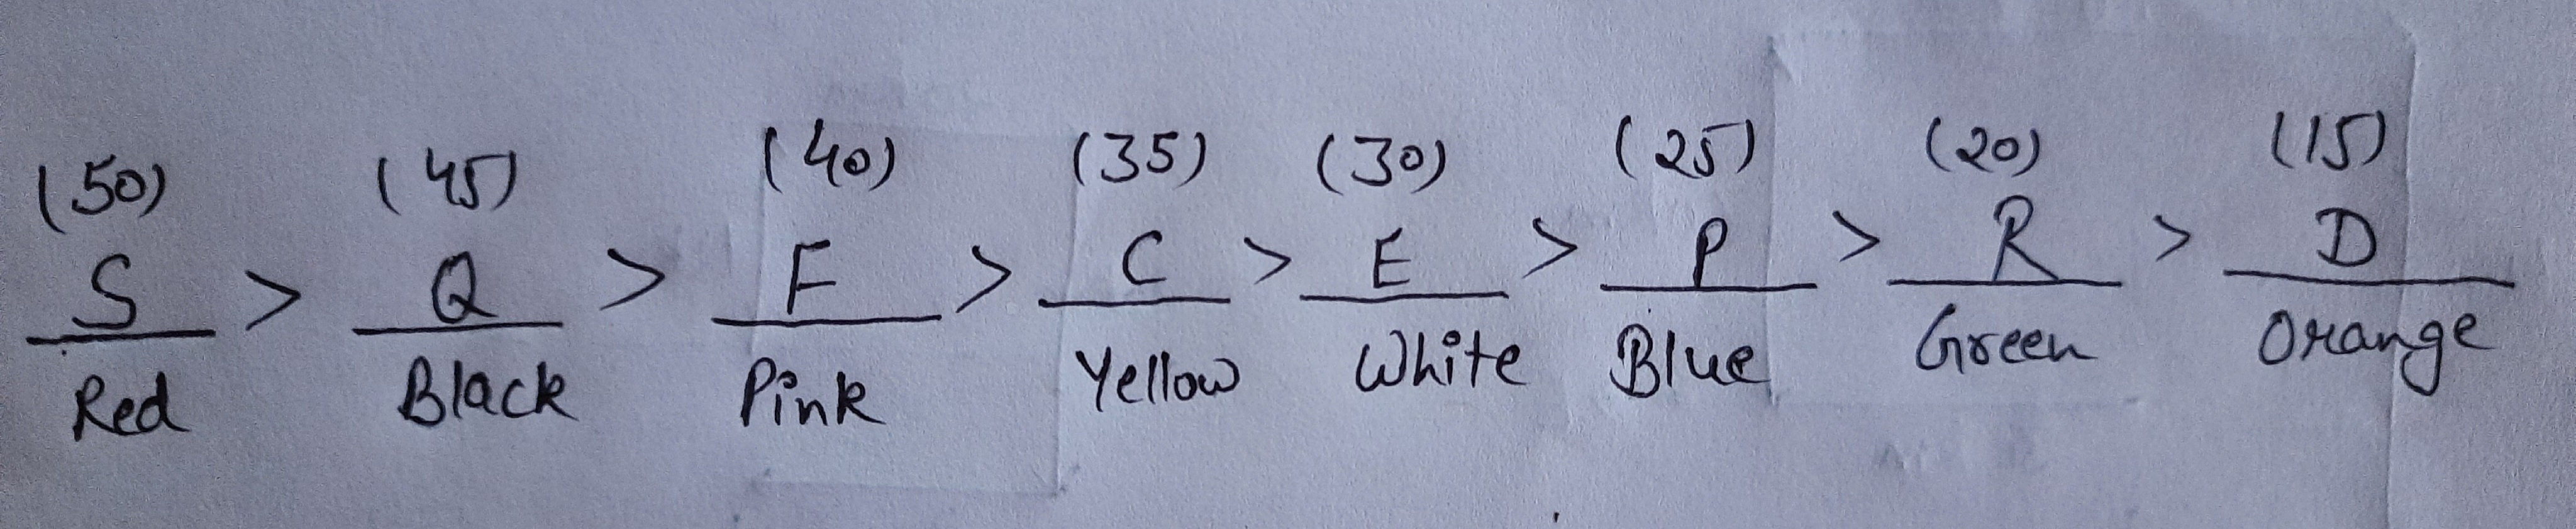 (50) (45) (40) (35) (30) (25) (20) (15)
S > Q > F > C > E > P > R > D
Red Black Pink Yellow White Blue Green Orange